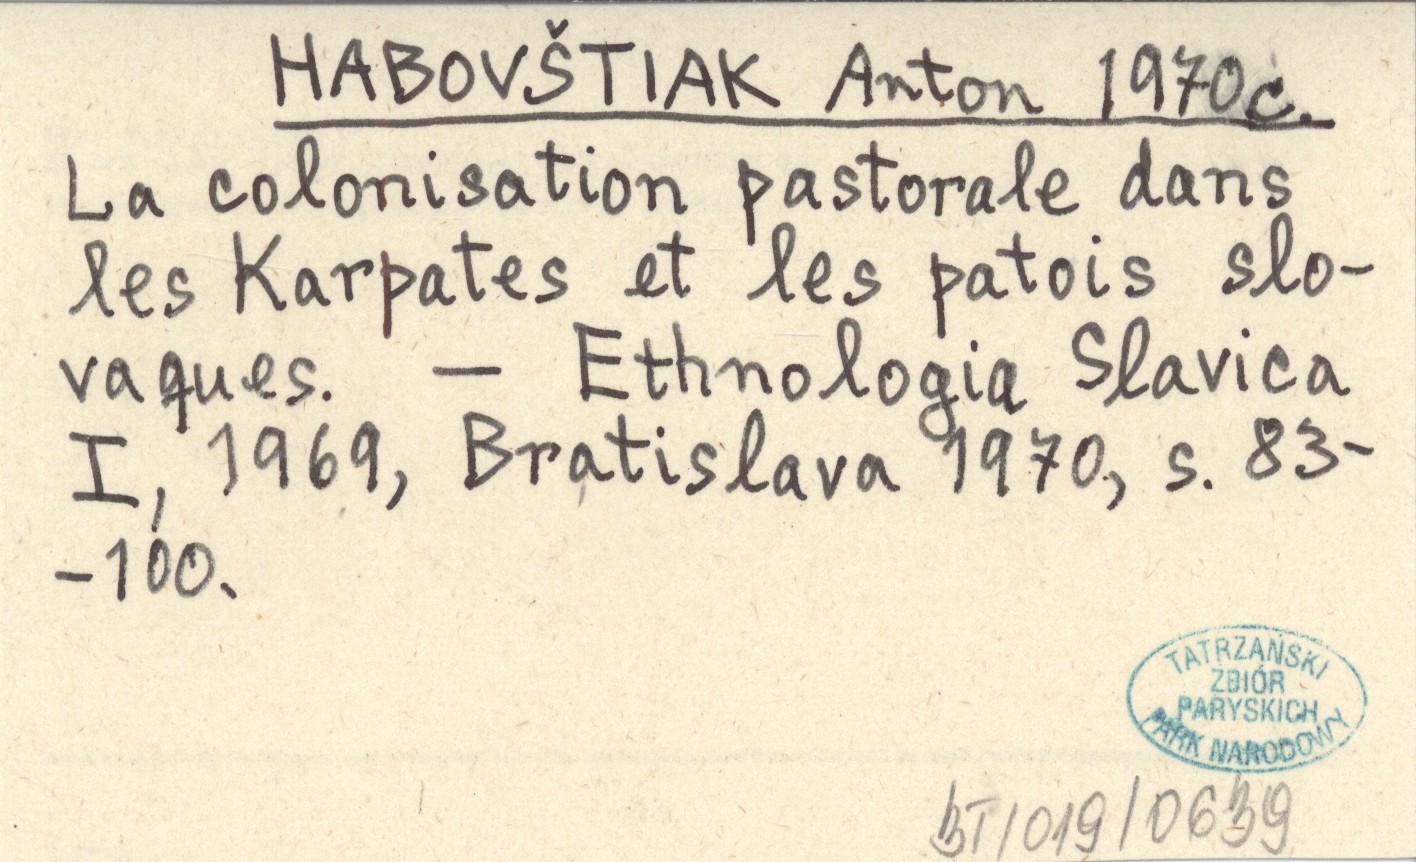 HABOVŠTIAK Anton 1970c.
La colonisation pastorale dans
les Karpates et les patois slo-
vaques. — Ethnologia Slavica
I, 1969, Bratislava 1970, s. 83-
-100.
TATRZAŃSKI
ZBIÓR
PARYSKICH
PARK NARODOWY
BT/019/0639